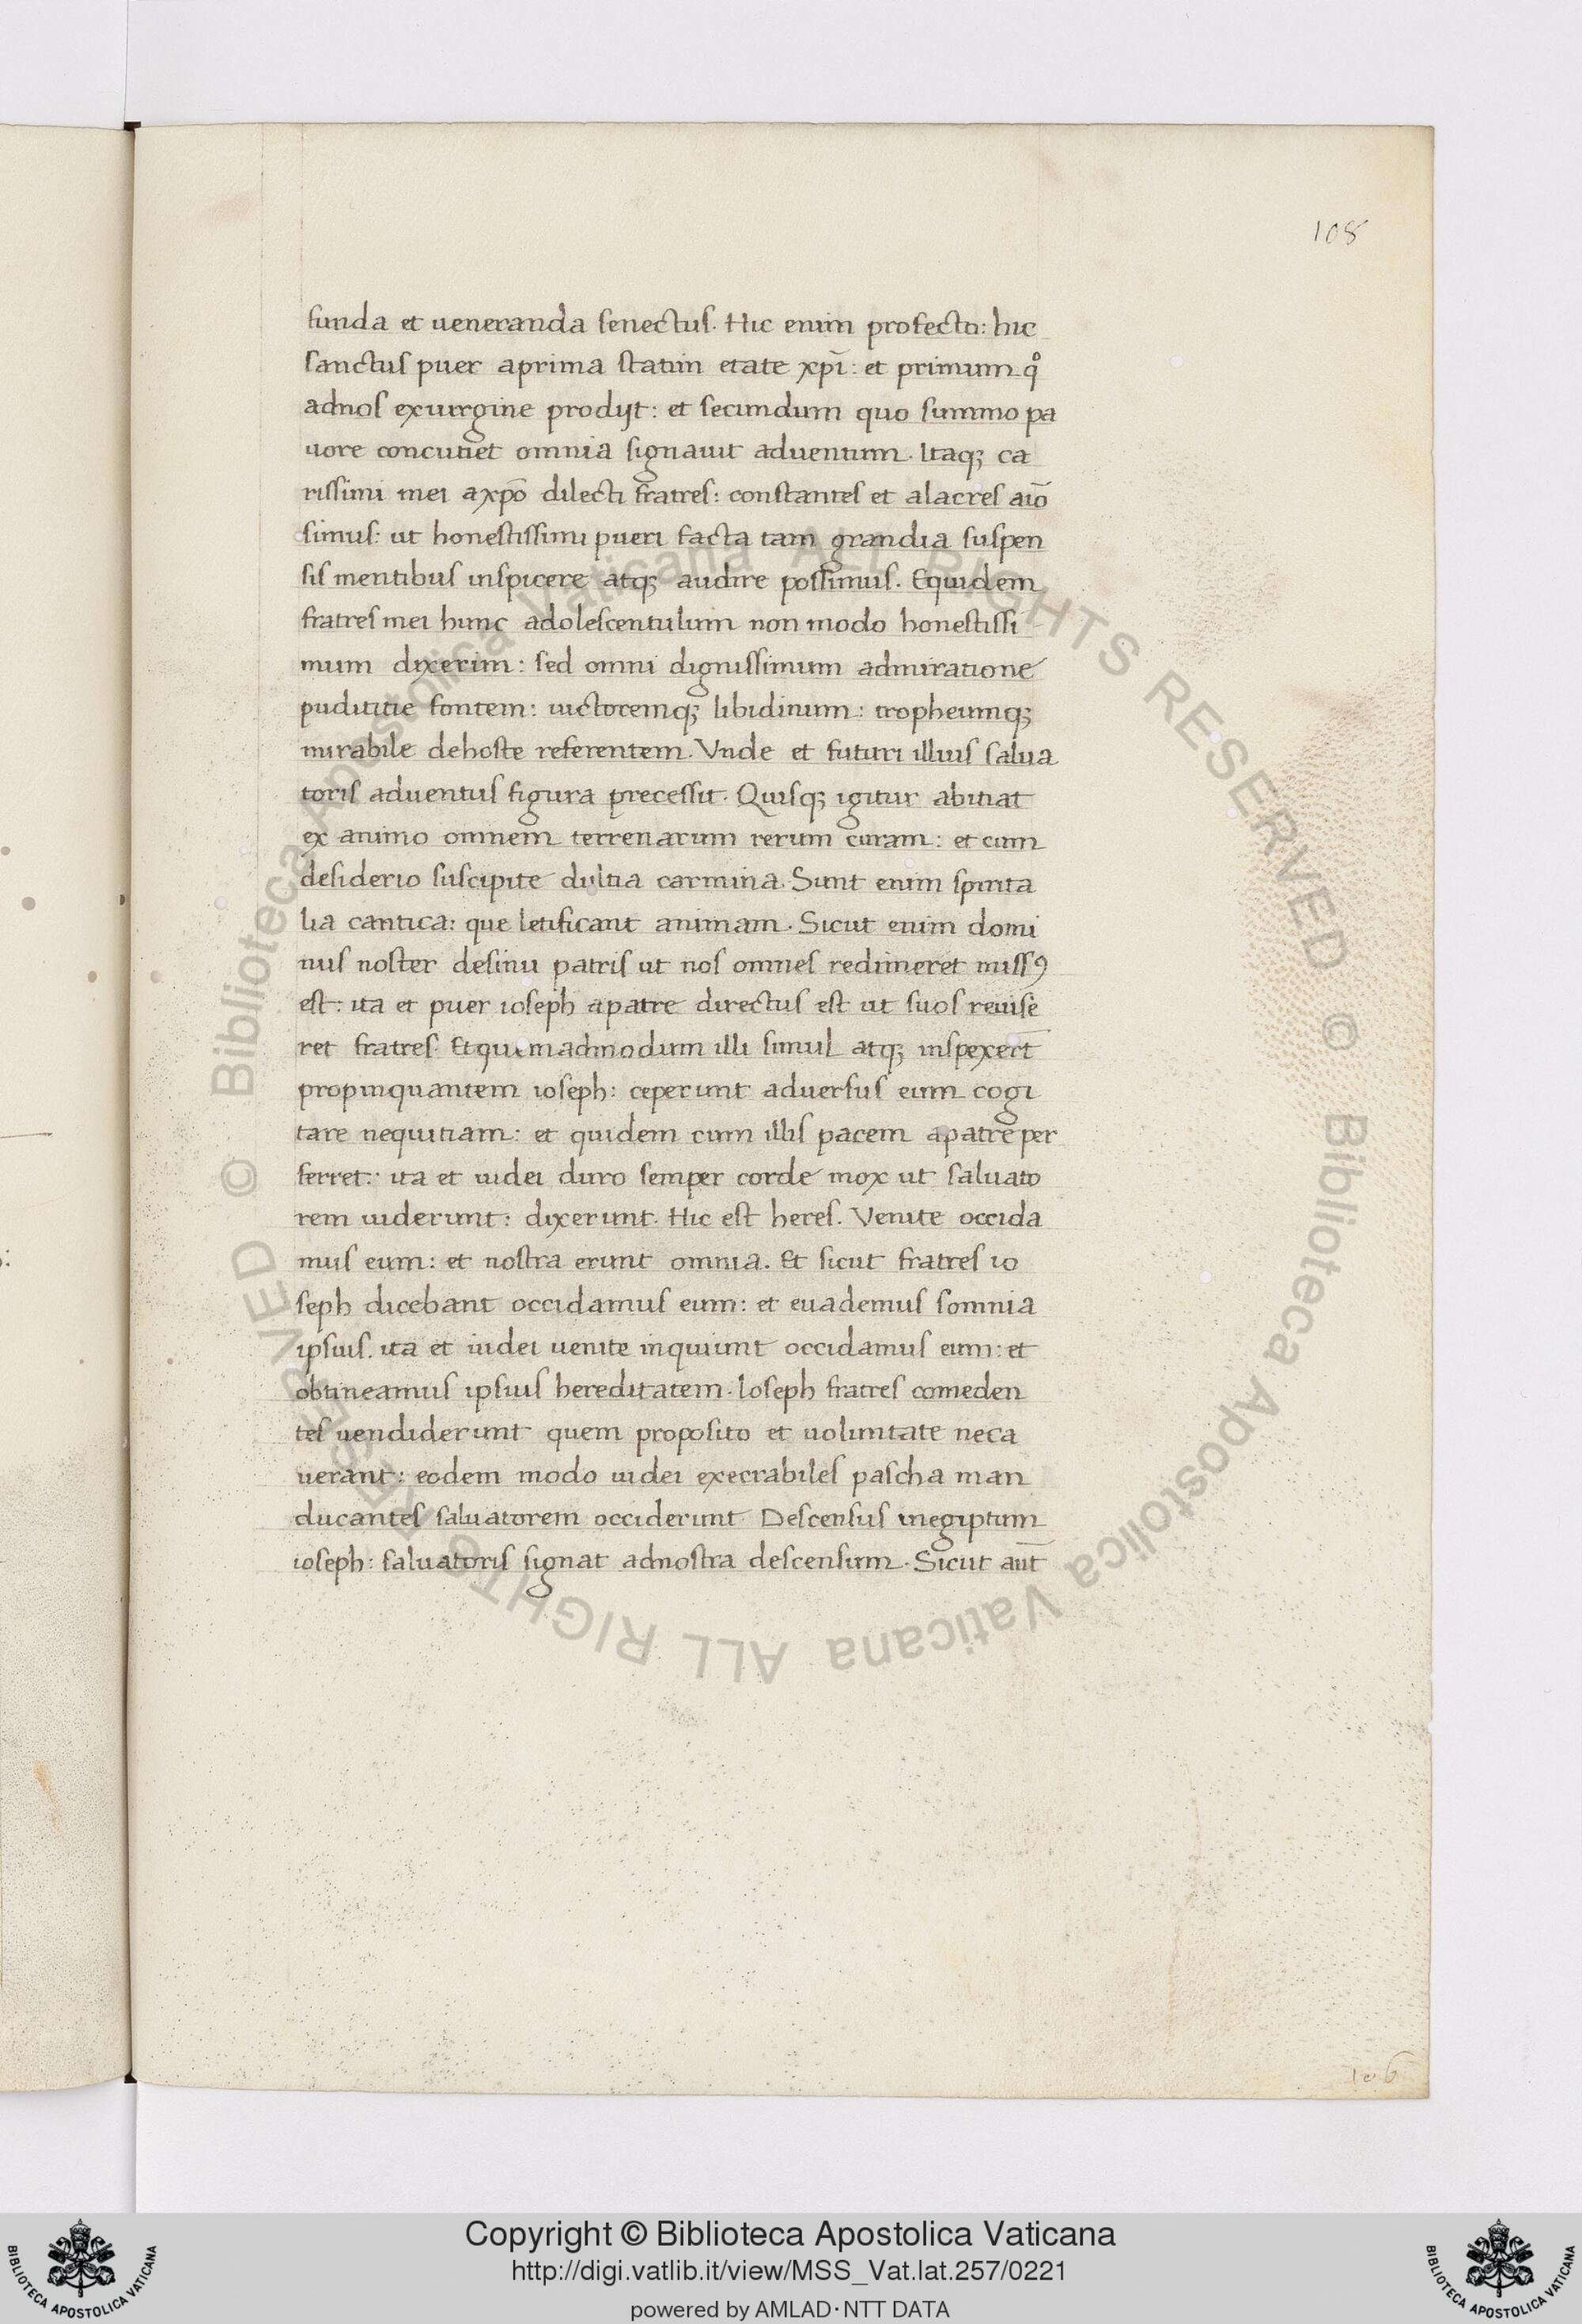 108
funda et ueneranda senectus. Hic enim profecto: hic
sanctus puer aprima statim etate xp̄i: et primum qͦ
adnos exuirgine prodijt: et secundum quo summo pa
uore concutiet omnia signauit aduentum. Itaqꝫ ca
rissimi mei axpō dilecti fratres: constantes et alacres aīo
simus: ut honestissimi pueri facta tam grandia suspen
sis mentibus inspicere atqꝫ audire possimus. Equidem
fratres mei hunc adolescentulum non modo honestissi
mum dixerim: sed omni dignissimum admiratione
pudititie fontem: uictoremqꝫ libidinum: tropheumqꝫ
mirabile dehoste referentem. Vnde et futuri illius salua
toris aduentus figura precessit. Quisqꝫ igitur abitiat
ex animo omnem terrenarum rerum curam: et cum
desiderio suscipite dultia carmina. Sunt enim spirita
lia cantica: que letificant animam. Sicut enim domi
nus noster desinu patris ut nos omnes redimeret missꝰ
est: ita et puer ioseph apatre directus est ut suos reuise
ret fratres. Etquemadmodum illi simul atqꝫ inspexer̄t
propinquantem ioseph: ceperunt aduersus eum cogi
tare nequitiam: et quidem cum illis pacem apatre per
ferret: ita et iudei duro semper corde mox ut saluato
rem uiderunt: dixerunt. Hic est heres. Venite occida
mus eum: et nostra erunt omnia. Et sicut fratres io
seph dicebant occidamus eum: et euademus somnia
ipsius. ita et iudei uenite inquiunt occidamus eum: et
obtineamus ipsius hereditatem. Ioseph fratres comeden
tes uendiderunt quem proposito et uoluntate neca
uerant: eodem modo iudei execrabiles pascha man
ducantes saluatorem occiderunt. Descensus inegiptum
ioseph: saluatoris signat adnostra descensum. Sicut aūt
106
© Biblioteca Apostolica Vaticana ALL RIGHTS RESERVED © Biblioteca Apostolica Vaticana ALL RIGHTS RESERVED
Copyright © Biblioteca Apostolica Vaticana
http://digi.vatlib.it/view/MSS_Vat.lat.257/0221
powered by AMLAD·NTT DATA
BIBLIOTECA APOSTOLICA VATICANA
BIBLIOTECA APOSTOLICA VATICANA